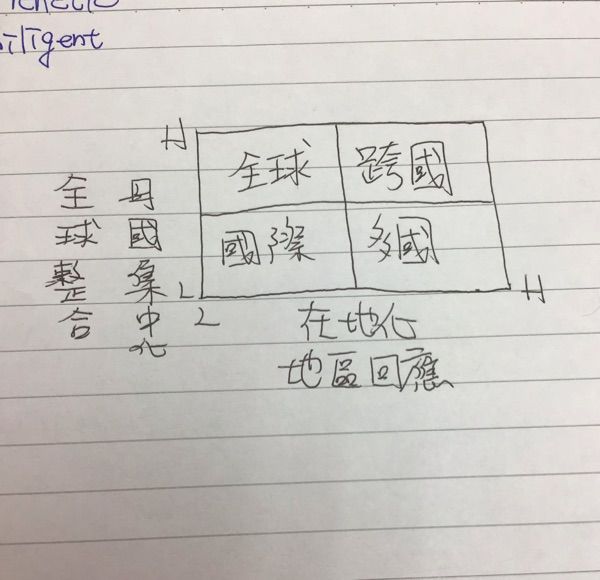 全球整合
母國集中化
H
全球 跨國
國際 多國
L
L
H
在地化
地區回應